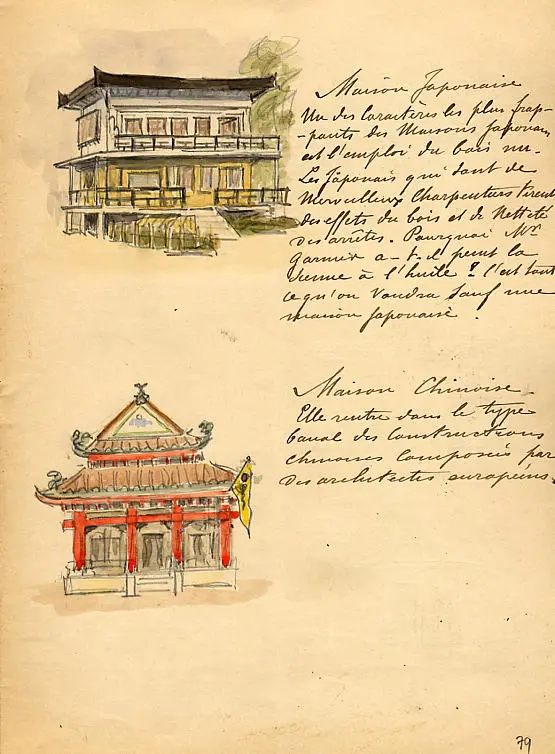 Maison Japonaise
Un des caractères les plus frap-
-pants des Maisons Japonaises
est l'emploi du bois nu.
Les Japonais qui sont de
Merveilleux Charpentiers tirent
des effets du bois et de Netteté
des arrêtes. Pourquoi Mr
Garnier a-t-il peint la
sienne à l'huile ? C'est tout
ce qu'on voudra sauf une
maison japonaise.
Maison Chinoise
Elle rentre dans le type
banal des Constructions
chinoises Composées par
des architectes européens.
79